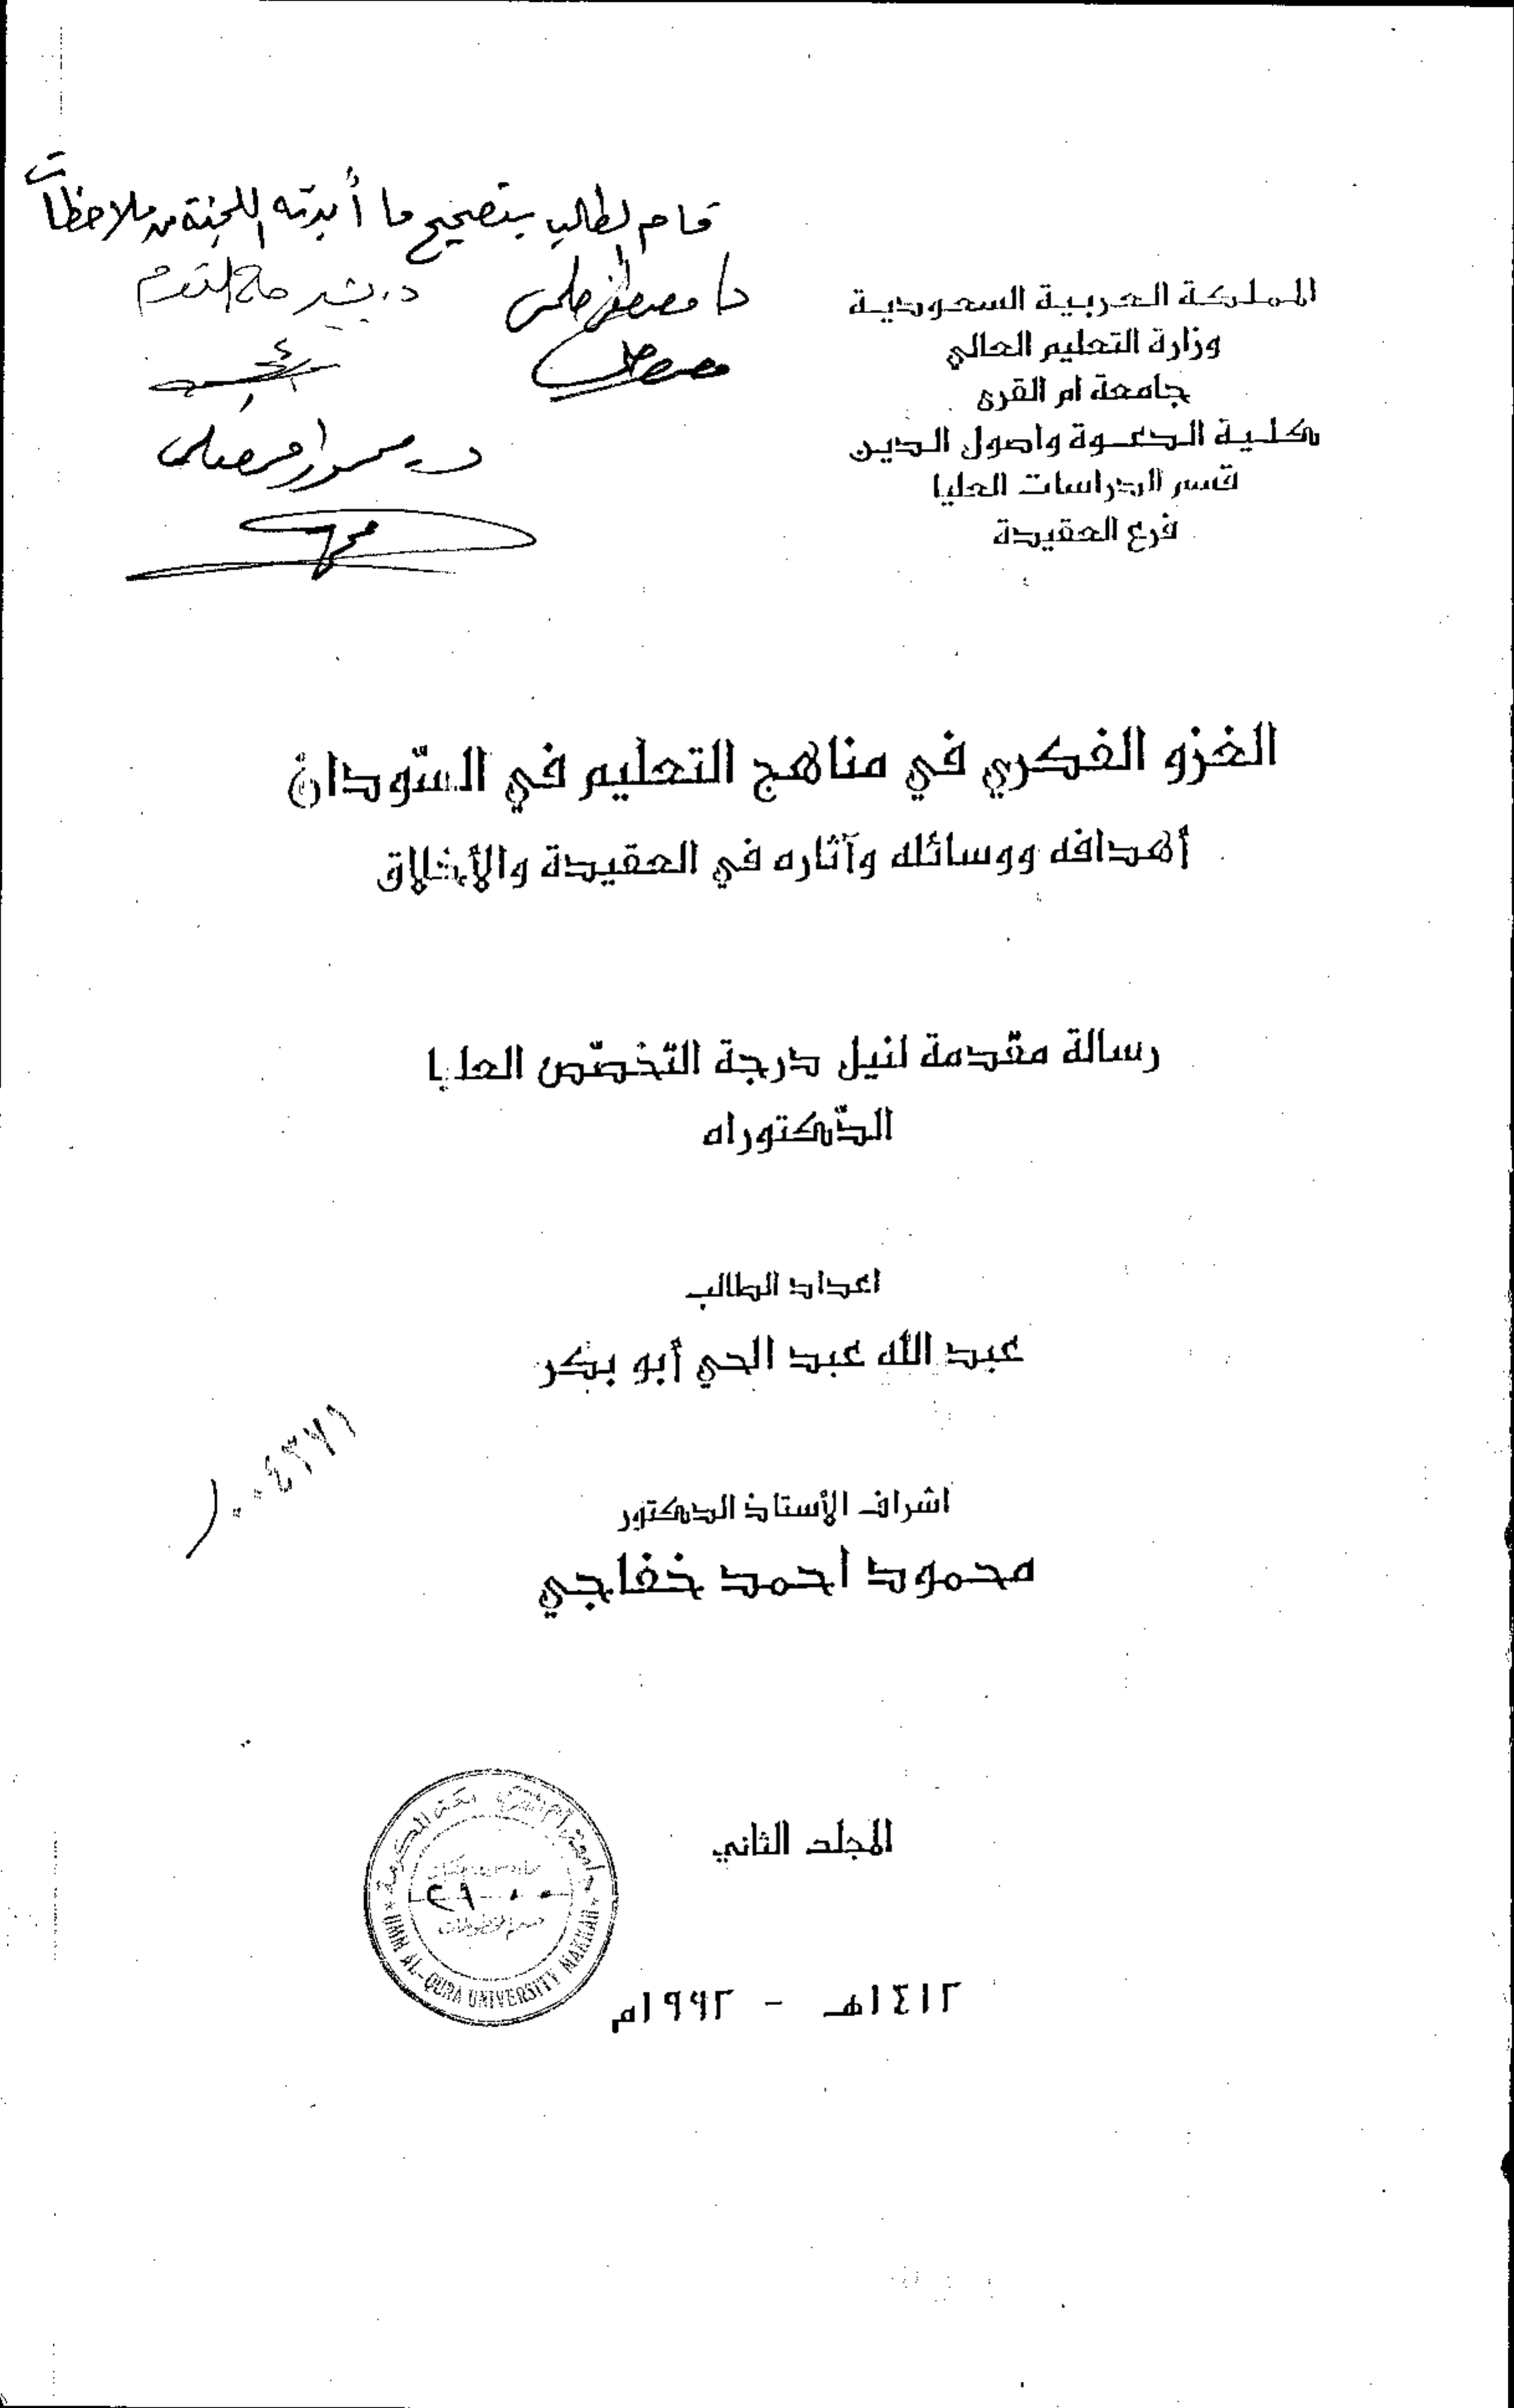 قام الطالب بتصحيح ما أبدته اللجنة من ملاحظات
د/ مصطفى حلمي
د. بشير
المملكة العربية السعودية
وزارة التعليم العالي
جامعة ام القرى
كلية الدعوة واصول الدين
قسم الدراسات العليا
فرع العقيدة
الغزو الفكري في مناهج التعليم في السّودان
أهدافه ووسائله وآثاره في العقيدة والأخلاق
رسالة مقدمة لنيل درجة التّخصّص العليا
الدّكتوراه
اعداد الطالب
عبد الله عبد الحي أبو بكر
اشراف الأستاذ الدكتور
محمود احمد خفاجي
المجلد الثاني
جامعة أم القرى مكة المكرمة
UMM AL-QURA UNIVERSITY MAKKAH
١٤١٢هـ - ١٩٩٢م